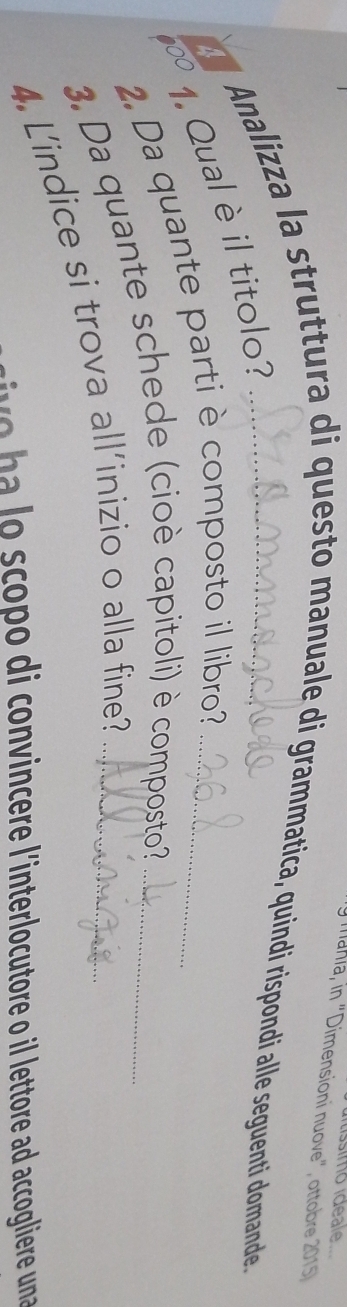 ssimo ideale....
mania, in "Dimensioni nuove", ottobre 2015)
4 Analizza la struttura di questo manuale di grammatica, quindi rispondi alle seguenti domande.
1. Qual è il titolo? ..... Grammaschede
2. Da quante parti è composto il libro? ..... 368
3. Da quante schede (cioè capitoli) è composto? ..... 4
4. L'indice si trova all'inizio o alla fine? ..... All'inizio
ha lo scopo di convincere l'interlocutore o il lettore ad accogliere una